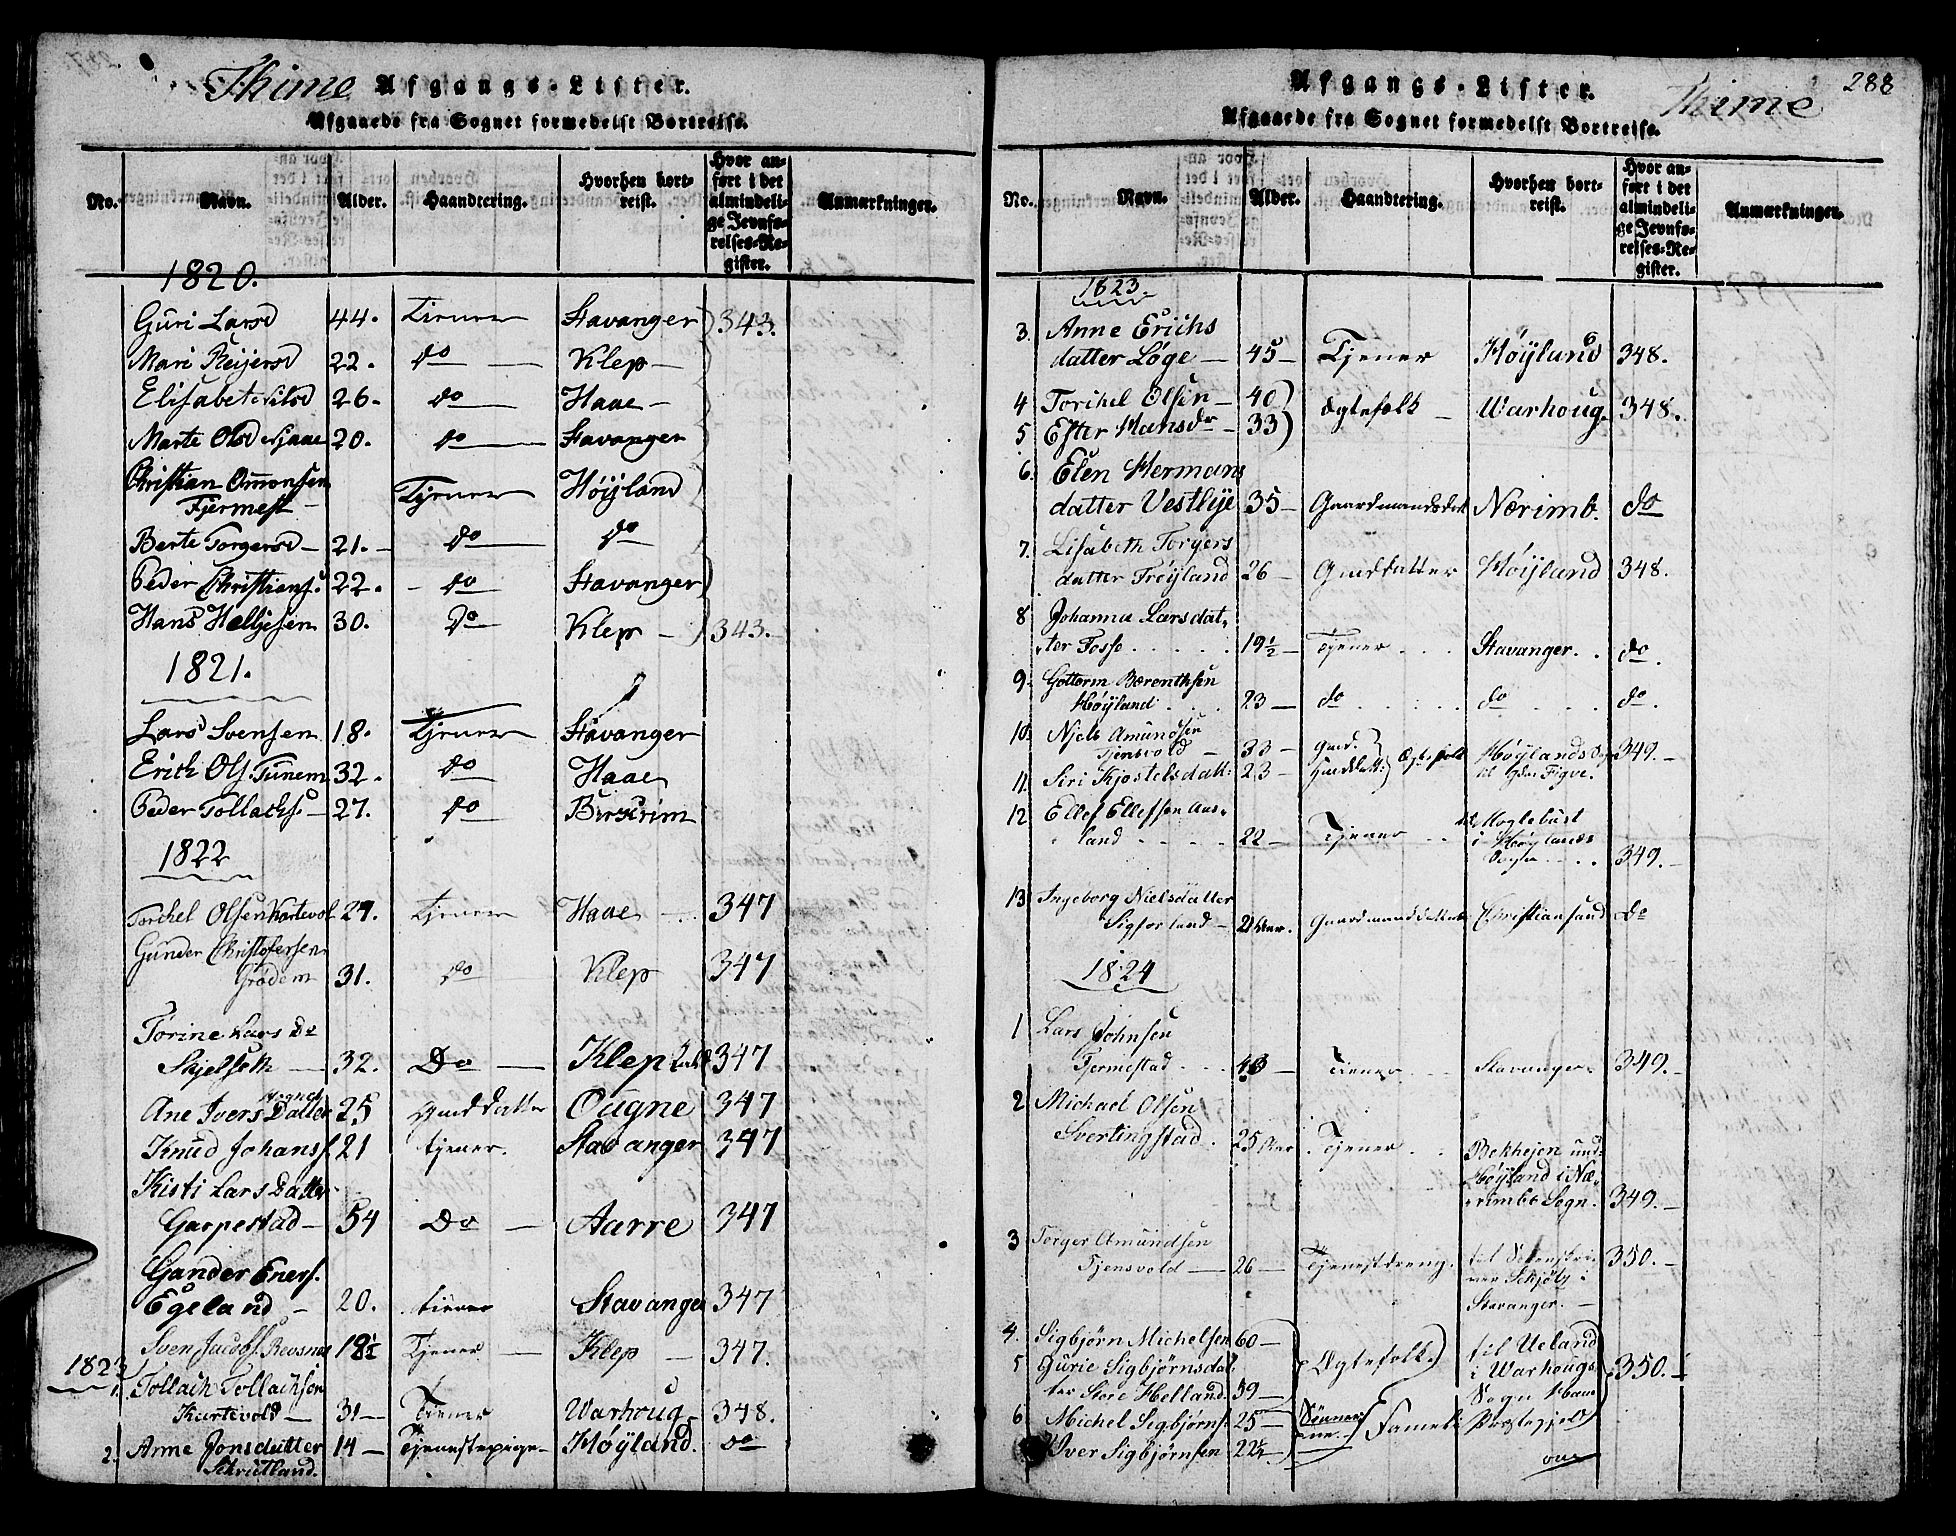 Thime Afgangs-Lister.
Afgaaede fra Sognet formedelst Bortreise.
No. Navn. Alder. Haandtering. Hvorhen bortreist. Hvor anført i det almindelige Jevnførelses-Register. Anmærkninger.
1820.
Guri Larsd 44. Tiener Stavanger 343.
Mari Reijersd 22. do Klep
Elisabet Nilsd 26. do Haae
Marte Olsd 20. do Stavanger
Christian Omonsen
Fjermest Tjener Høijland
Berte Torgersd 21. do do
Peder Christians. 22. do Stavanger
Hans Helljesen 30. do Klep 343.
1821.
Lars Svensen 18. Tjener Stavanger
Erich Ols. Tunem 32. do Haae
Peder Tollachs. 27. do
1822
Torchel Olsen 29. tjener Haae 347
Gunder Christofersen
Grødem 31. do Klep 347
Torine Lars Dr
32. Do Klep 347
Ane Ivers Datter 25 gmd datter Ougne 347
Knud Johans. 21 tjener. Stavanger 347
Kisti Lars Datter
Garpestad 54 Do Aarre 347
Gander Eners.
Egeland 20. tiener Stavanger 347
Sven Jacobs. 18½ Tjener Klep 347.
1823
1. Tollach Tollachsen
Kartevold 31 Tiener Warhoug 348.
2. Anne Jonsdatter 14 Tjenestepige Høyland. do
Skrutland.
Afgangs-Lister. Thime 288
Afgaaede fra Sognet formedelst Bortreise.
No. Navn. Alder. Haandtering. Hvorhen bortreist. Hvor anført i det almindelige Jevnførelses-Register. Anmærkninger.
1823.
3. Anne Erichs
datter Løge 45 Tjener Høyland 348.
4 Torchel Olsen 40 Ægtefolk Warhoug. 348.
5 Efter Hansdr 33
6. Elen Hermans
datter Vestlije 35 Gaardmandsdat Nærimb. do
7. Lisabeth Torgers
datter Frøyland 26 Gmd datter Høijland 348.
8 Johanna Larsdat,
ter Fosse 19½ Tjener Stavanger. do.
9. Gottorm Berenthsen
Høyland 23 do do do.
10. Niels Amundsen
Tjensvold 33 Gmd. Høylands 349.
11. Siri Kjostelsdatt: 23 Gmddatt: Ægtefolk
12 Ellef Ellefsen Aas-
land 22 Tjener til Moglebust
i Høylands
Sogn 349.
13 Ingeborg Nielsdatter
21 Aar. Gaardmanddatter Christiansand do
1824
1 Lars Johnsen
Fjermestad 43 Tiener Stavanger. 349.
2 Michael Olsen
Svertingstad. 25 Aar Tjener
Høyland i Næ,
rimbs Sogn. 349.
3 Torger Amundsen
Tjensvold 26 Tjenestdreng. til 350.
Stavanger.
4. Sigbjørn Michelsen 60 til Ueland
5 Gurie Sigbjørnsdat Ægtefolk i Warhougs 350.
ter Store Helland. 39 Sogn Haae
6 Michel Sigbjørns. 25 Sønner Fameli Præstegjeld
Iver Sigbjørnsen 22½